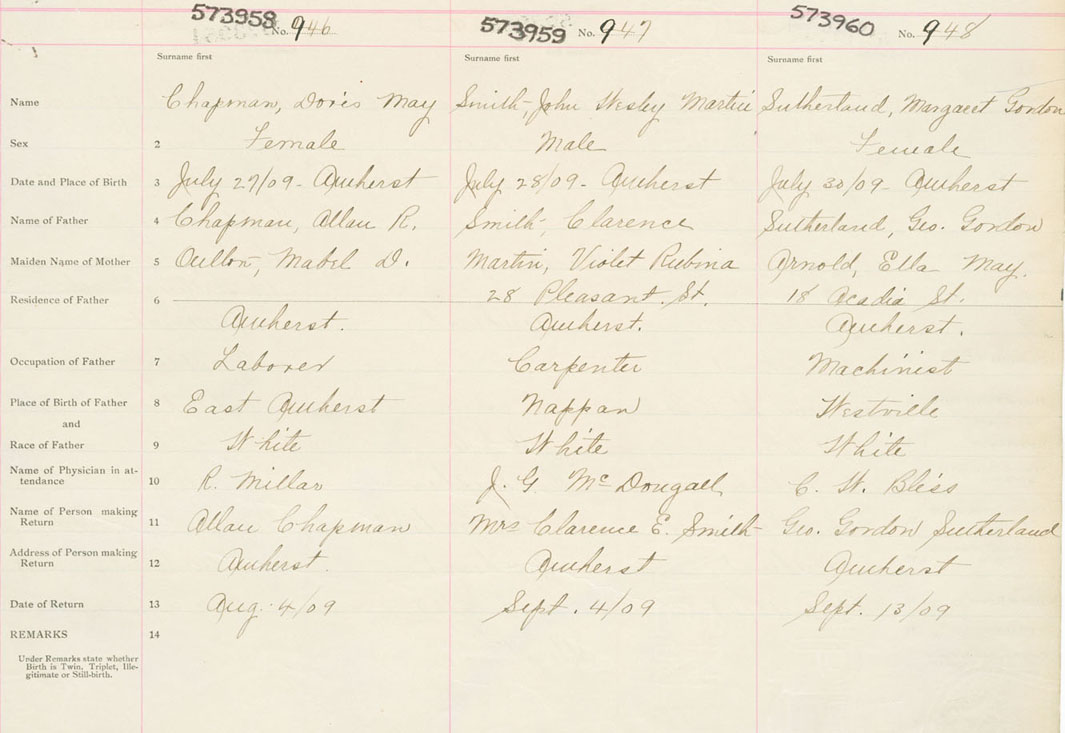 573958 No. 946 573959 No. 947 573960 No. 948
Surname first Surname first Surname first
Name Chapman, Doris May Smith, John Wesley Martin Sutherland, Margaret Gordon
Sex 2 Female Male Female
Date and Place of Birth 3 July 27/09 - Amherst July 28/09 - Amherst July 30/09 - Amherst
Name of Father 4 Chapman, Allan R. Smith, Clarence Sutherland, Geo. Gordon
Maiden Name of Mother 5 Oulton, Mabel D. Martin, Violet Rubina Arnold, Ella May.
Residence of Father 6 28 Pleasant St. 18 Acadia St.
Amherst. Amherst. Amherst.
Occupation of Father 7 Laborer Carpenter Machinist
Place of Birth of Father 8 East Amherst Nappan Westville
and
Race of Father 9 White White White
Name of Physician in at-
tendance 10 R. Millar J. G. McDougall C. W. Bliss
Name of Person making
Return 11 Allan Chapman Mrs Clarence E. Smith Geo. Gordon Sutherland
Address of Person making
Return 12 Amherst. Amherst Amherst
Date of Return 13 Aug. 4/09 Sept. 4/09 Sept. 13/09
REMARKS 14
Under Remarks state whether
Birth is Twin, Triplet, Ille-
gitimate or Still-birth.